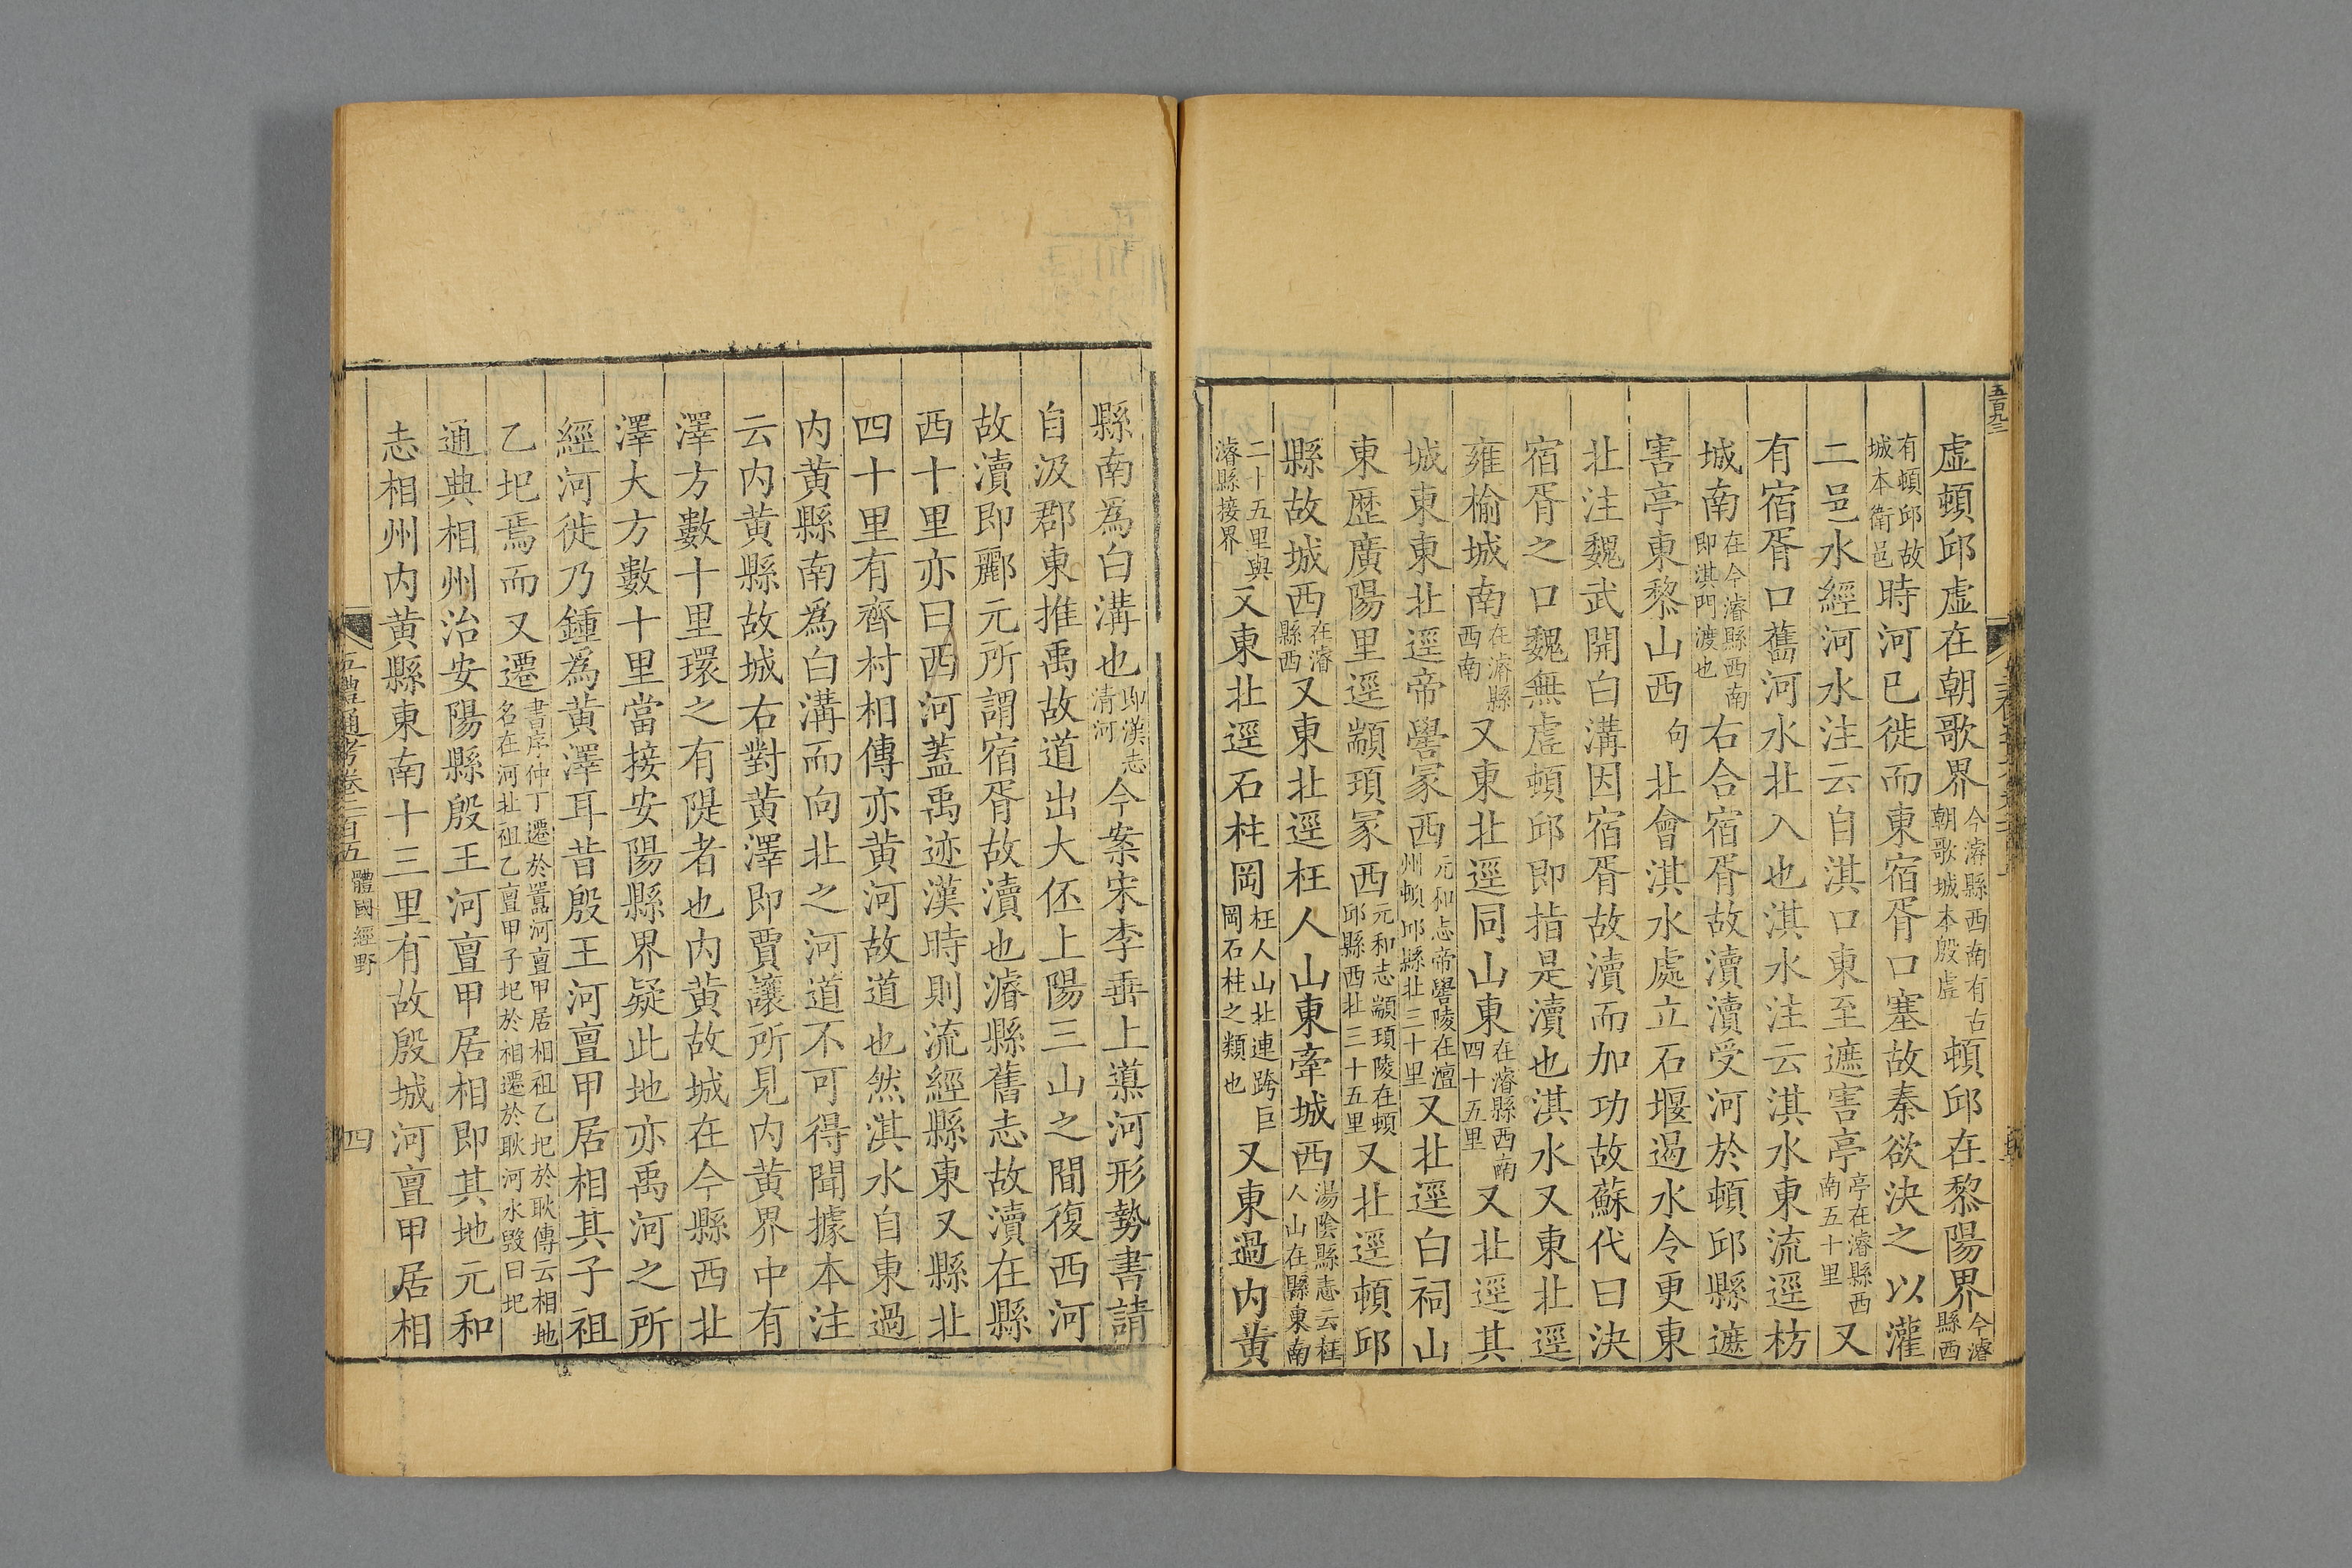 五百九三
虛頓邱虛在朝歌界今濬縣西南有古朝歌城本殷虛頓邱在黎陽界今濬縣西
有頓邱故城本衛邑時河已徙而東宿胥口塞故秦欲決之以灌
二邑水經河水注云自淇口東至遮害亭亭在濬縣西南五十里又
有宿胥口舊河水北入也淇水注云淇水東流逕枋
城南在今濬縣西南即淇門渡也右合宿胥故瀆瀆受河於頓邱縣遮
害亭東黎山西句北會淇水處立石堰遏水令更東
北注魏武開白溝因宿胥故瀆而加功故蘇代曰決
宿胥之口魏無虛頓邱即指是瀆也淇水又東北逕
雍榆城南在濬縣西南又東北逕同山東在濬縣西南四十五里又北逕其
城東東北逕帝嚳冢西元和志帝嚳陵在澶州頓邱縣北三十里又北逕白祠山
東歷廣陽里逕顓頊冢西元和志顓頊陵在頓邱縣西北三十五里又北逕頓邱
縣故城西在濬縣西又東北逕枉人山東牽城西湯陰縣志云枉人山在縣東南
二十五里與濬縣接界又東北逕石柱岡枉人山北連跨巨岡石柱之類也又東過内黄
縣南爲白溝也即漢志清河今案宋李垂上導河形勢書請
自汲郡東推禹故道出大伾上陽三山之間復西河
故瀆即酈元所謂宿胥故瀆也濬縣舊志故瀆在縣
西十里亦曰西河蓋禹迹漢時則流經縣東又縣北
四十里有齊村相傳亦黄河故道也然淇水自東過
内黄縣南爲白溝而向北之河道不可得聞據本注
云内黄縣故城右對黄澤即賈讓所見内黄界中有
澤方數十里環之有隄者也内黄故城在今縣西北
澤大方數十里當接安陽縣界疑此地亦禹河之所
經河徙乃鍾爲黄澤耳昔殷王河亶甲居相其子祖
乙圯焉而又遷書序仲丁遷於嚻河亶甲居相祖乙圯於耿傳云相地名在河北祖乙亶甲子圯於相遷於耿河水毀曰圯
通典相州治安陽縣殷王河亶甲居相即其地元和
志相州内黄縣東南十三里有故殷城河亶甲居相
五禮通考卷二百五 體國經野 四